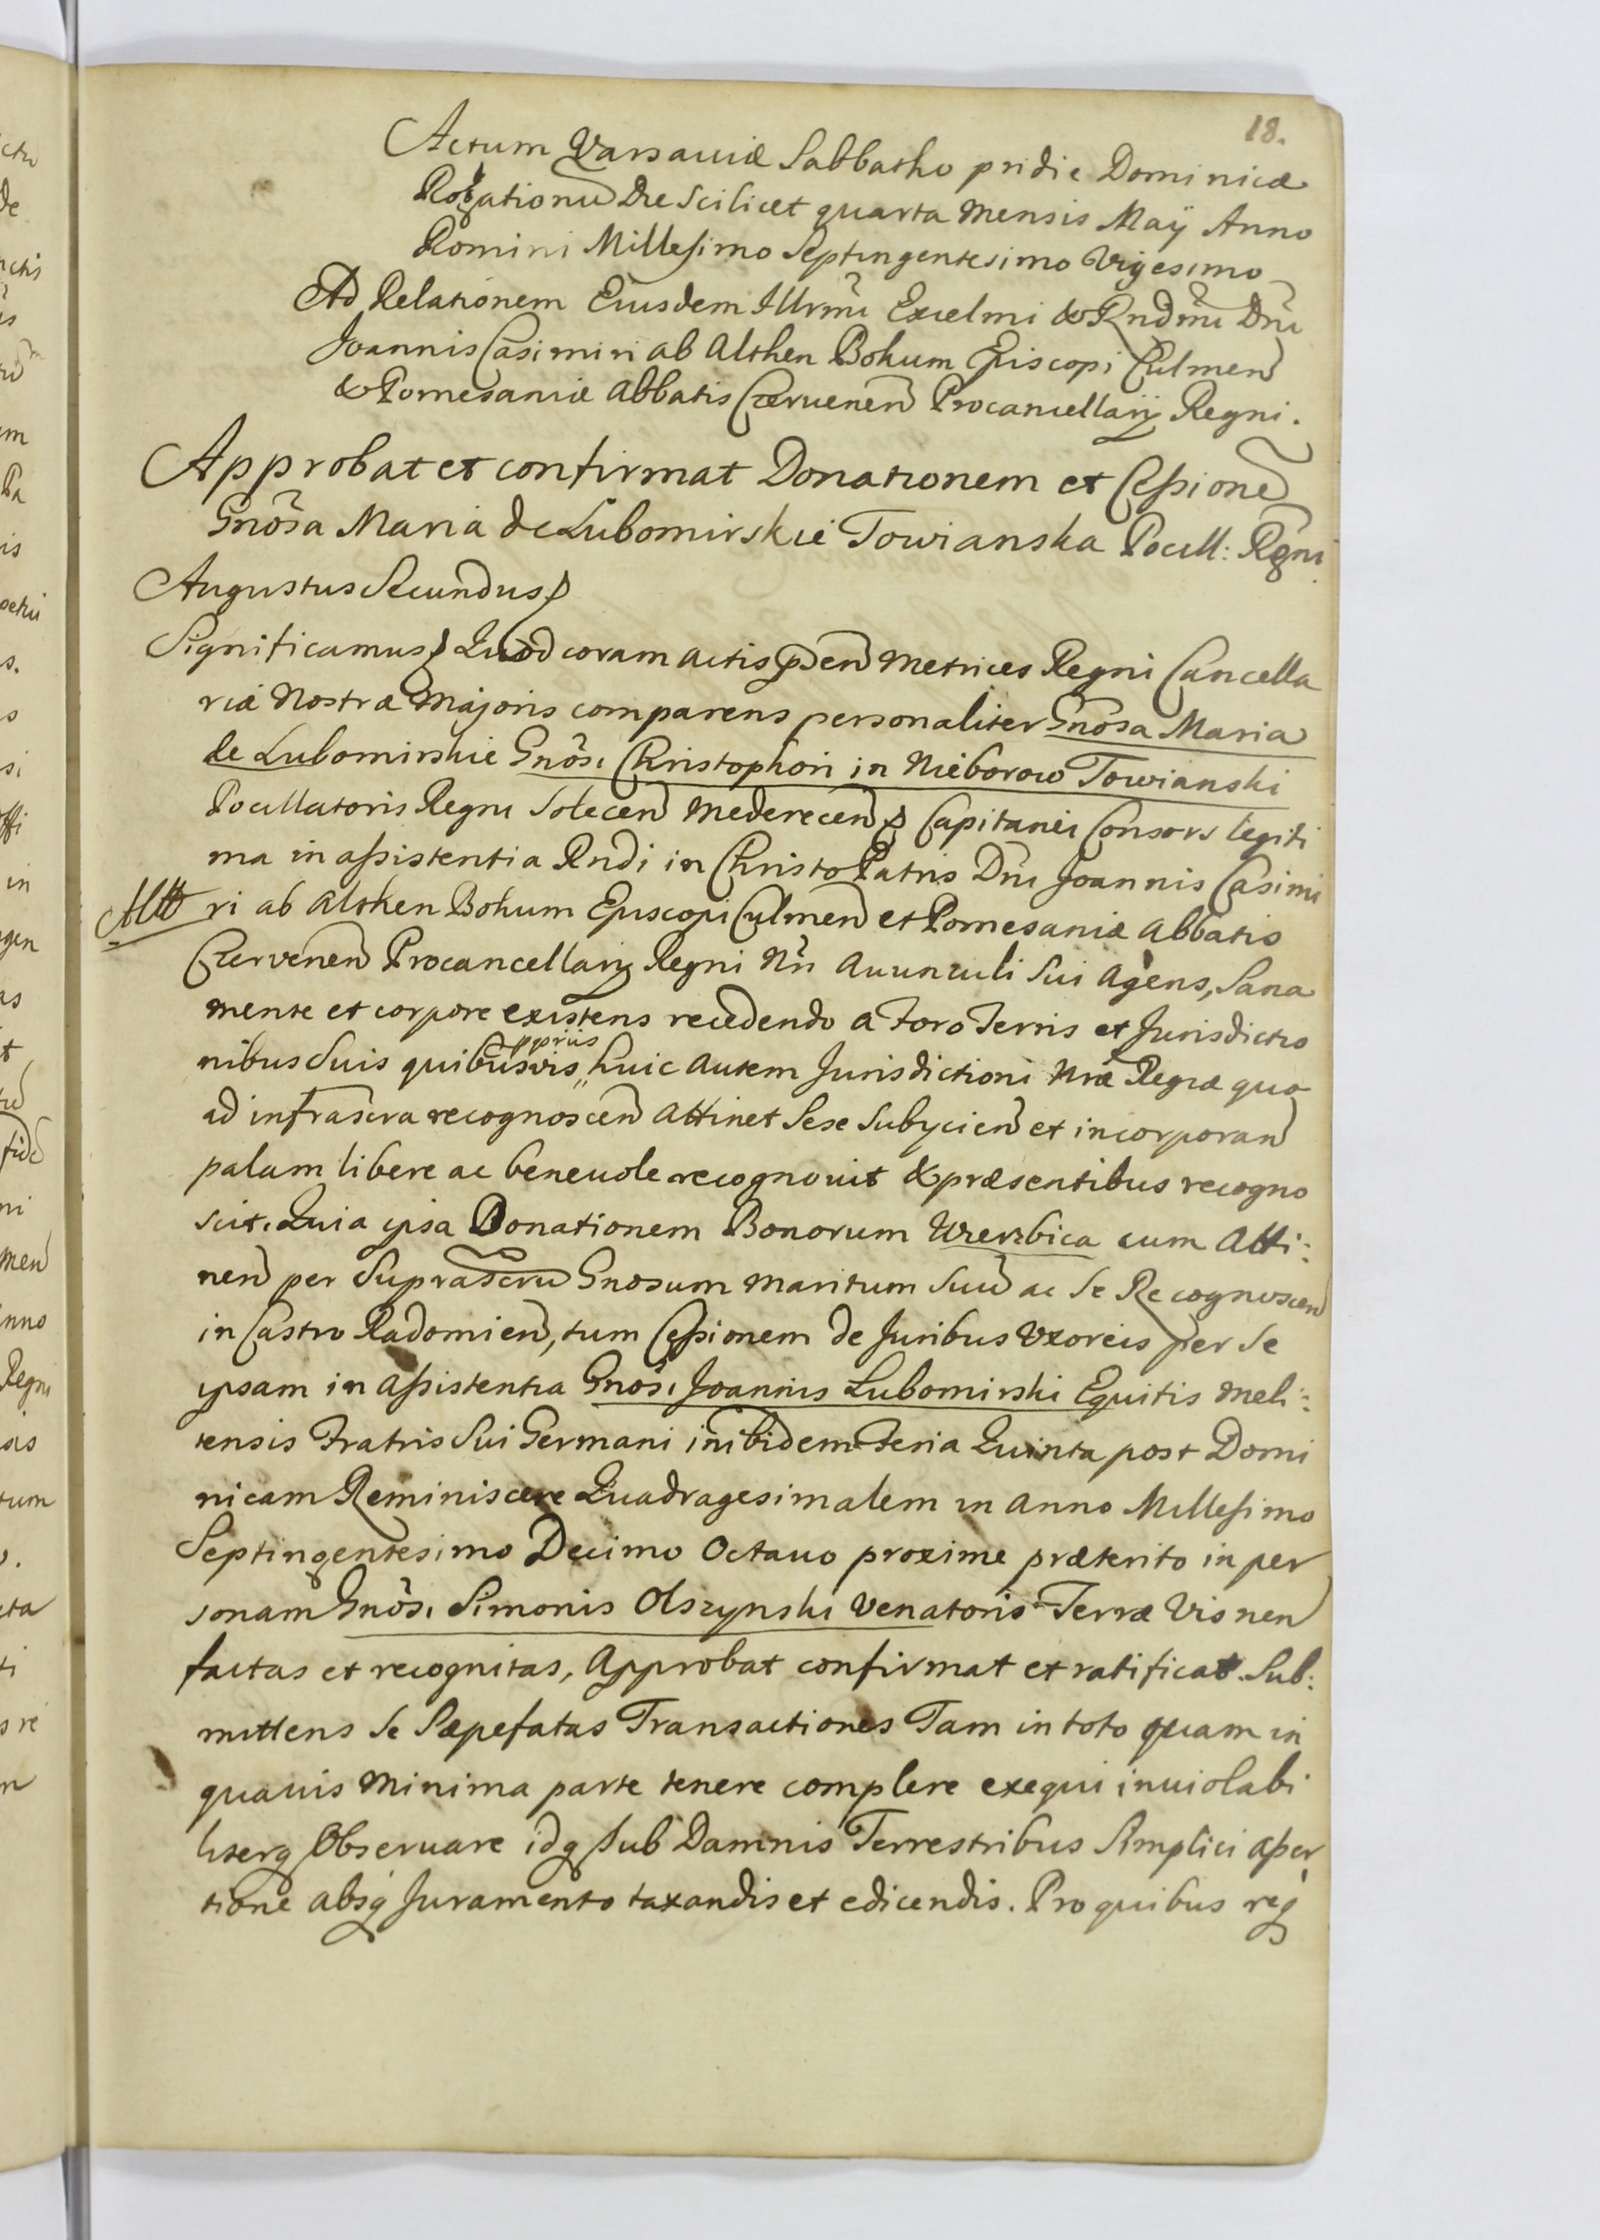 18.
Actum Varsaviæ Sabbatho pridie Dominicæ
Rogationũ Die Scilicet quarta Mensis Maÿ Anno
Domini Millesimo Septingentesimo Vigesimo
Ad Relationem Eiusdem Illrmi Excelmi & Rndmi Dni
Joannis Casimiri ab Alten Bokum Episcopi Culmen
& Pomesaniæ Abbatis Czervenen Procancellarij Regni.
Approbat et confirmat Donationem et Cessionē
Gnosa Maria de Lubomirskie Towianska Pocill: Rgni
Augustus Secundus
Significamus Quod coram Actis pden Metrices Regni Cancella
riæ Nostræ Majoris comparens personaliter Gnosa Maria
de Lubomirskie Gnosi Christophori in Nieborow Towianski
Pocillatoris Regni Solecen Mederecen Capitanei Consors legiti
ma in assistentia Rndi in Christo Patris Dni Joannis Casimi
ri ab Alten Bokum Episcopi Culmen et Pomesaniæ Abbatis
Czervenen Procancellarij Regni Nri Avunculi Sui Agens, Sana
mente et corpore existens recedendo a Foro Terris et Jurisdictio
ppriis
nibus Suis quibusvis,, huic autem Jurisdictioni Nræ Regiæ quo
ad infrascra recognoscen Attinet Sese Subycien et incorporan
palam libere ac benevole recognovit & præsentibus recogno
scit. Quia ipsa Donationem Bonorum Wierzbica cum Atti:
nen per Suprascrũ Gnosum Maritum Suũ ac Se Recognoscen
in Castro Radomien, tum Cessionem de Juribus Uxoreis per Se
ipsam in Assistentia Gnosi Joannis Lubomirski Equitis Meli:
tensis Fratris Sui Germani inibidem Feria Quinta post Domi
nicam Reminiscere Quadragesimalem in Anno Millesimo
Septingentesimo Decimo Octavo proxime præterito in per
sonam Gnosi Simonis Olszynski Venatoris Terræ Visnen
factas et recognitas, Approbat confirmat et ratificat. Sub:
mittens Se Sæpefatas Transactiones Tam in toto quam in
quavis Minima parte tenere complere exequi inviolabi
literq Observare idq sub Damnis Terrestribus Simplici Asser
tione absq Juramento taxandis et edicendis. Pro quibus reg